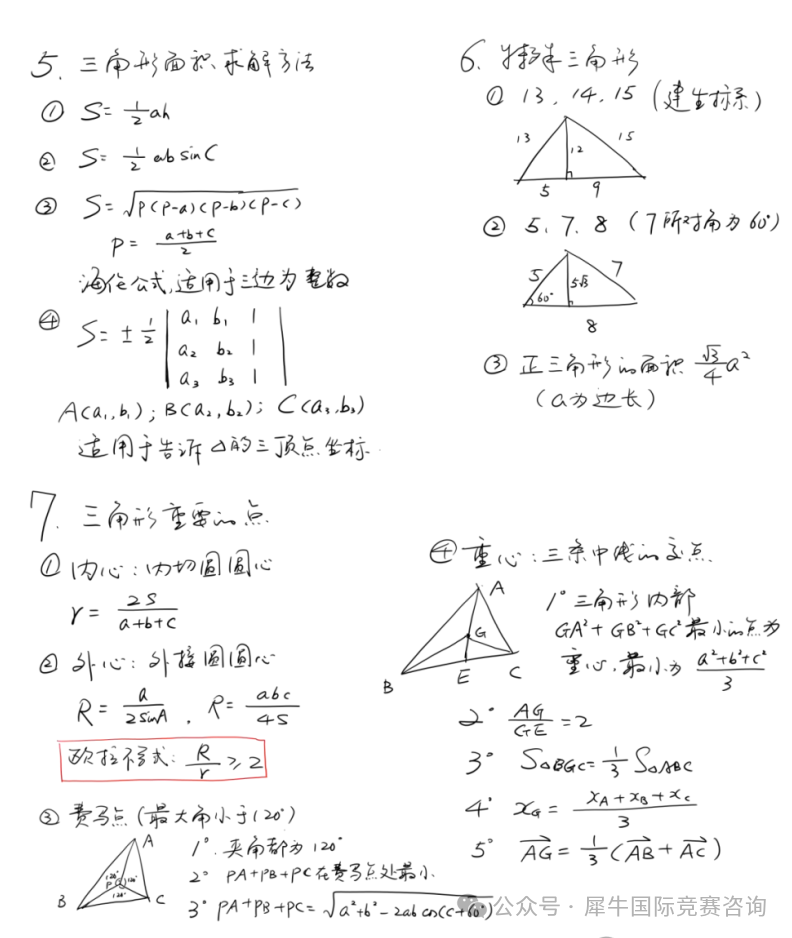 5. 三角形面积求解方法
① S= 1/2 ah
② S= 1/2 ab sinC
③ S= √P(P-a)(P-b)(P-c)
P= (a+b+c)/2
海伦公式,适用于三边为整数
④ S= ± 1/2 | a₁ b₁ 1 |
| a₂ b₂ 1 |
| a₃ b₃ 1 |
A(a₁,b₁); B(a₂,b₂); C(a₃,b₃)
适用于告诉△的三顶点坐标.
6. 特殊三角形
① 13, 14, 15 (建坐标系)
13 12 15
5 9
② 5、7、8 (7所对角为60°)
5 5√3 7
60°
8
③ 正三角形的面积 √3/4 a²
(a为边长)
7. 三角形重要的点
① 内心:内切圆圆心
r= 2S/(a+b+c)
② 外心:外接圆圆心
R= a/(2sinA) , R= abc/4S
欧拉不等式: R/r ≥ 2
③ 费马点 (最大角小于120°)
A
120° P 120°
120°
B C
1° 夹角都为120°
2° PA+PB+PC在费马点处最小.
3° PA+PB+PC= √a²+b²-2ab cos(C+60°)
④ 重心:三条中线的交点
A
G
B E C
1° 三角形内部
GA²+GB²+GC²最小的点为
重心,最小为 (a²+b²+c²)/3
2° AG/GE =2
3° S△BGC= 1/3 S△ABC
4° x_G= (x_A+x_B+x_C)/3
5° →AG= 1/3 (→AB+→AC)
公众号 · 犀牛国际竞赛咨询